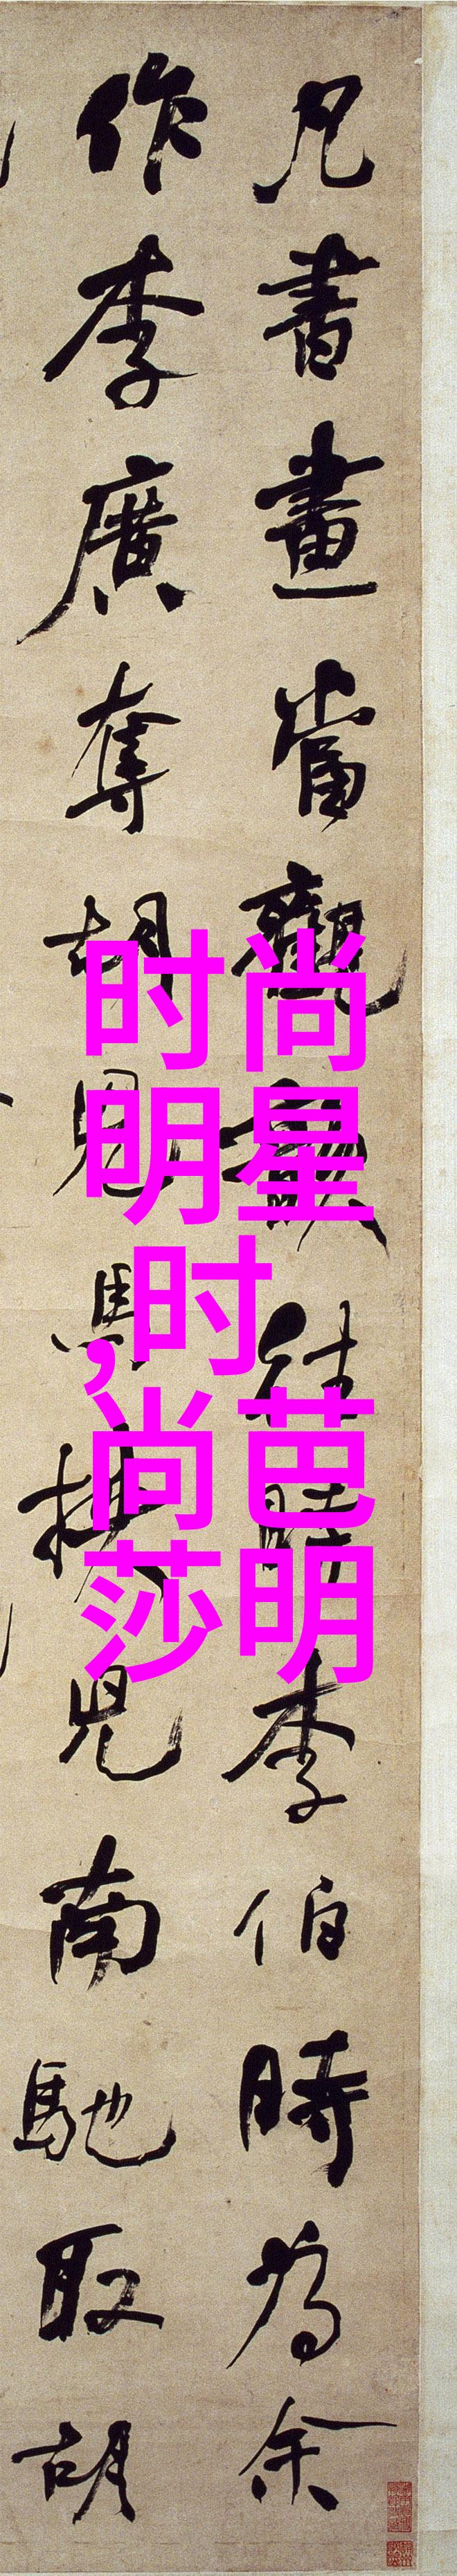 凡書畫當觀韻往時李伯時為余
作李廣奪胡兒馬挾兒南馳取胡
时尚
明星
,时
尚芭
莎明